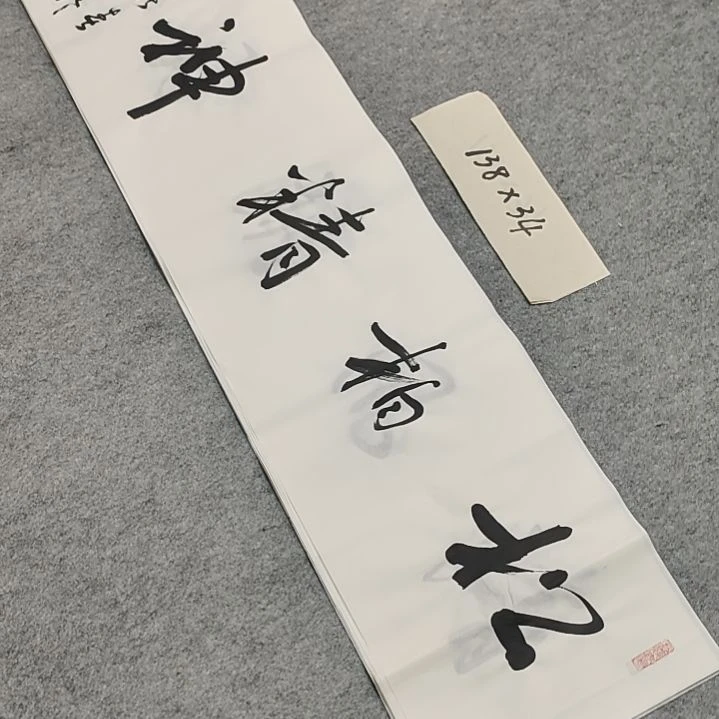 松柏精神
138×34